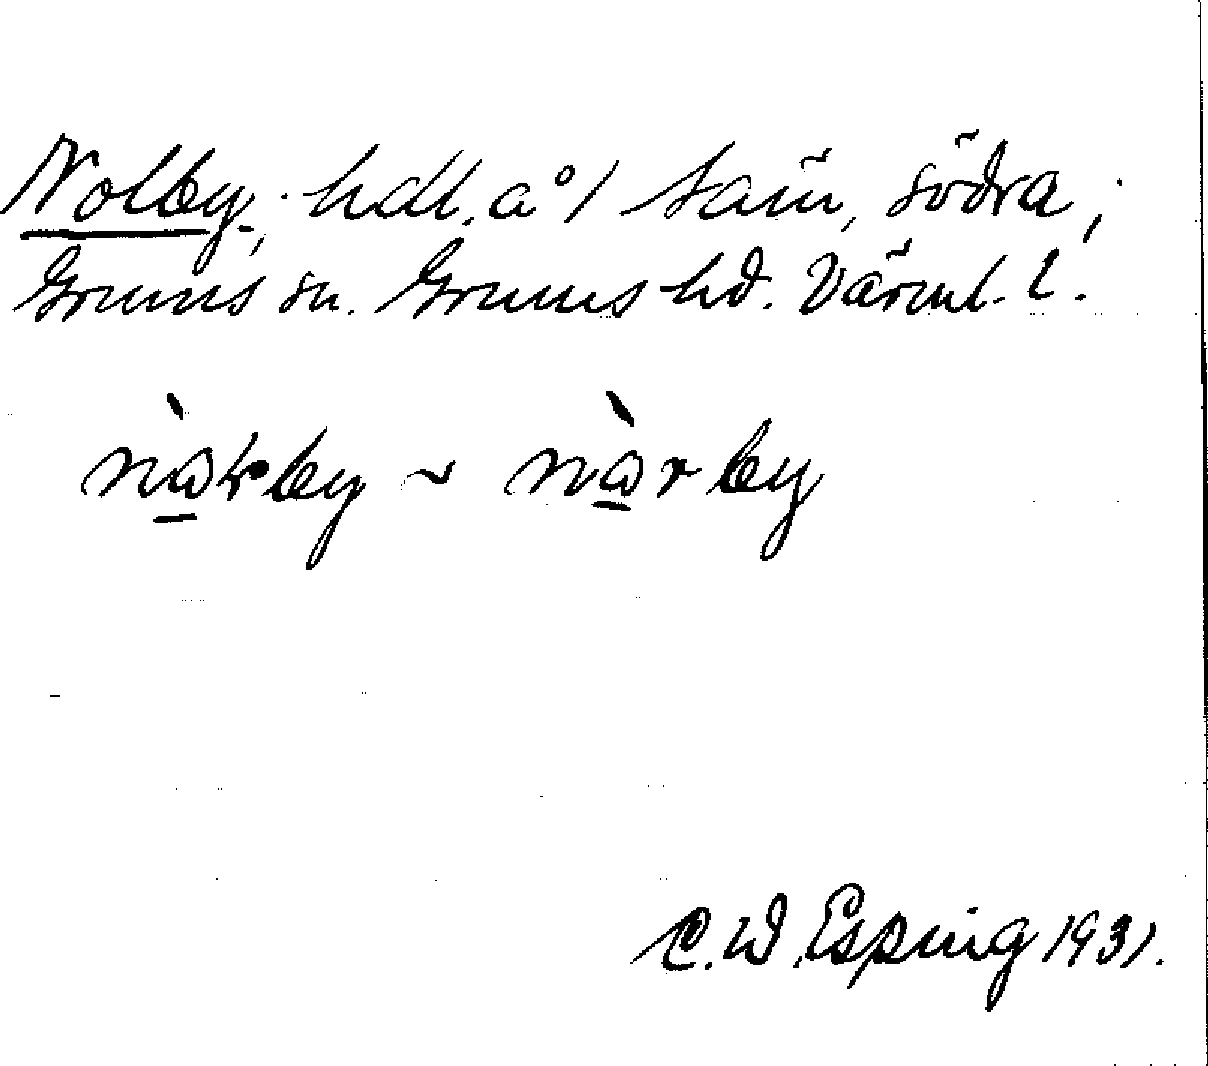 Nolby, hdl. av Säm, södra,
Grums sn. Grums hd. Värml. l.
nɷ̀rby ~ nɷ̀rby
C.W. Esping 1931.